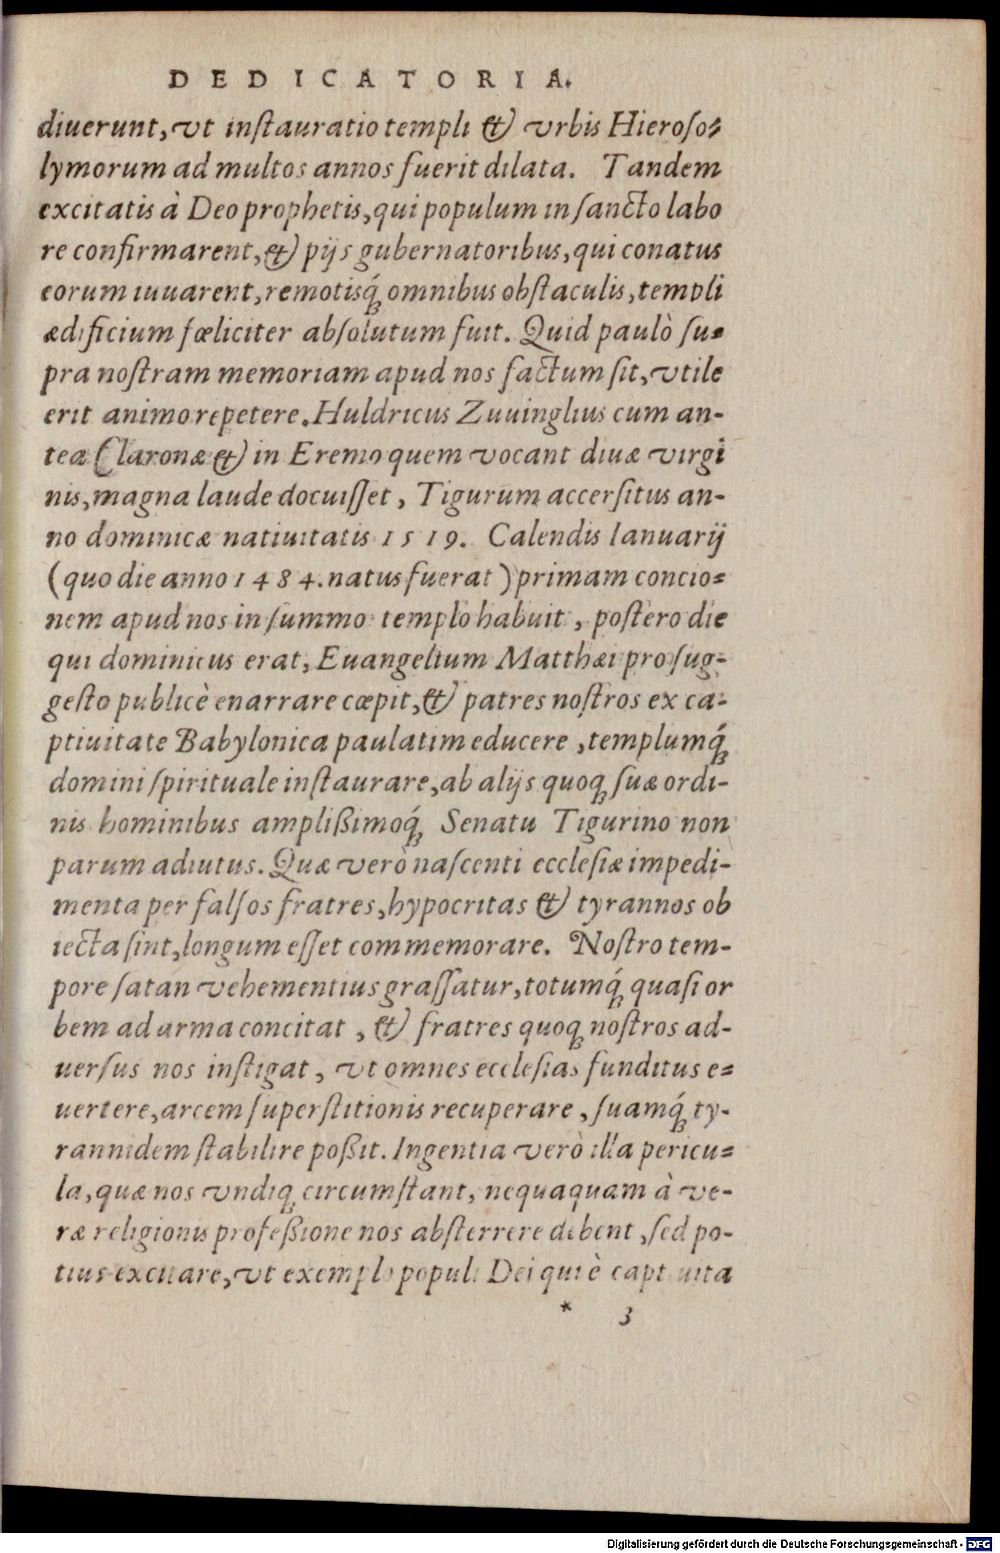 DEDICATORIA.
diuerunt, vt instauratio templi & vrbis Hieroso-
lymorum ad multos annos fuerit dilata. Tandem
excitatis à Deo prophetis, qui populum in sancto labo
re confirmarent, & pijs gubernatoribus, qui conatus
eorum iuuarent, remotisq́ omnibus obstaculis, templi
ædificium fœliciter absolutum fuit. Quid paulò su-
pra nostram memoriam apud nos factum sit, vtile
erit animo repetere. Huldricus Zuuinglius cum an-
tea Claronæ & in Eremo quem vocant diuæ virgi
nis, magna laude docuisset, Tigurum accersitus an-
no dominicæ natiuitatis 1519. Calendis Ianuarij
(quo die anno 1484. natus fuerat) primam concio-
nem apud nos in summo templo habuit, postero die
qui dominicus erat, Euangelium Matthæi pro sug-
gesto publicè enarrare cœpit, & patres nostros ex ca-
ptiuitate Babylonica paulatim educere, templumq́
domini spirituale instaurare, ab alijs quoq suæ ordi-
nis hominibus amplißimoq́ Senatu Tigurino non
parum adiutus. Quæ verò nascenti ecclesiæ impedi-
menta per falsos fratres, hypocritas & tyrannos ob
iecta sint, longum esset commemorare. Nostro tem-
pore satan vehementius grassatur, totumq́ quasi or
bem ad arma concitat, & fratres quoq nostros ad-
uersus nos instigat, vt omnes ecclesias funditus e-
uertere, arcem superstitionis recuperare, suamq́ ty-
rannidem stabilire poßit. Ingentia verò illa pericu-
la, quæ nos vndiq circumstant, nequaquam à ve-
ræ religionis profeßione nos absterrere debent, sed po-
tius excitare, vt exemplo populi Dei qui è captiuita
* 3
Digitalisierung gefördert durch die Deutsche Forschungsgemeinschaft - DFG